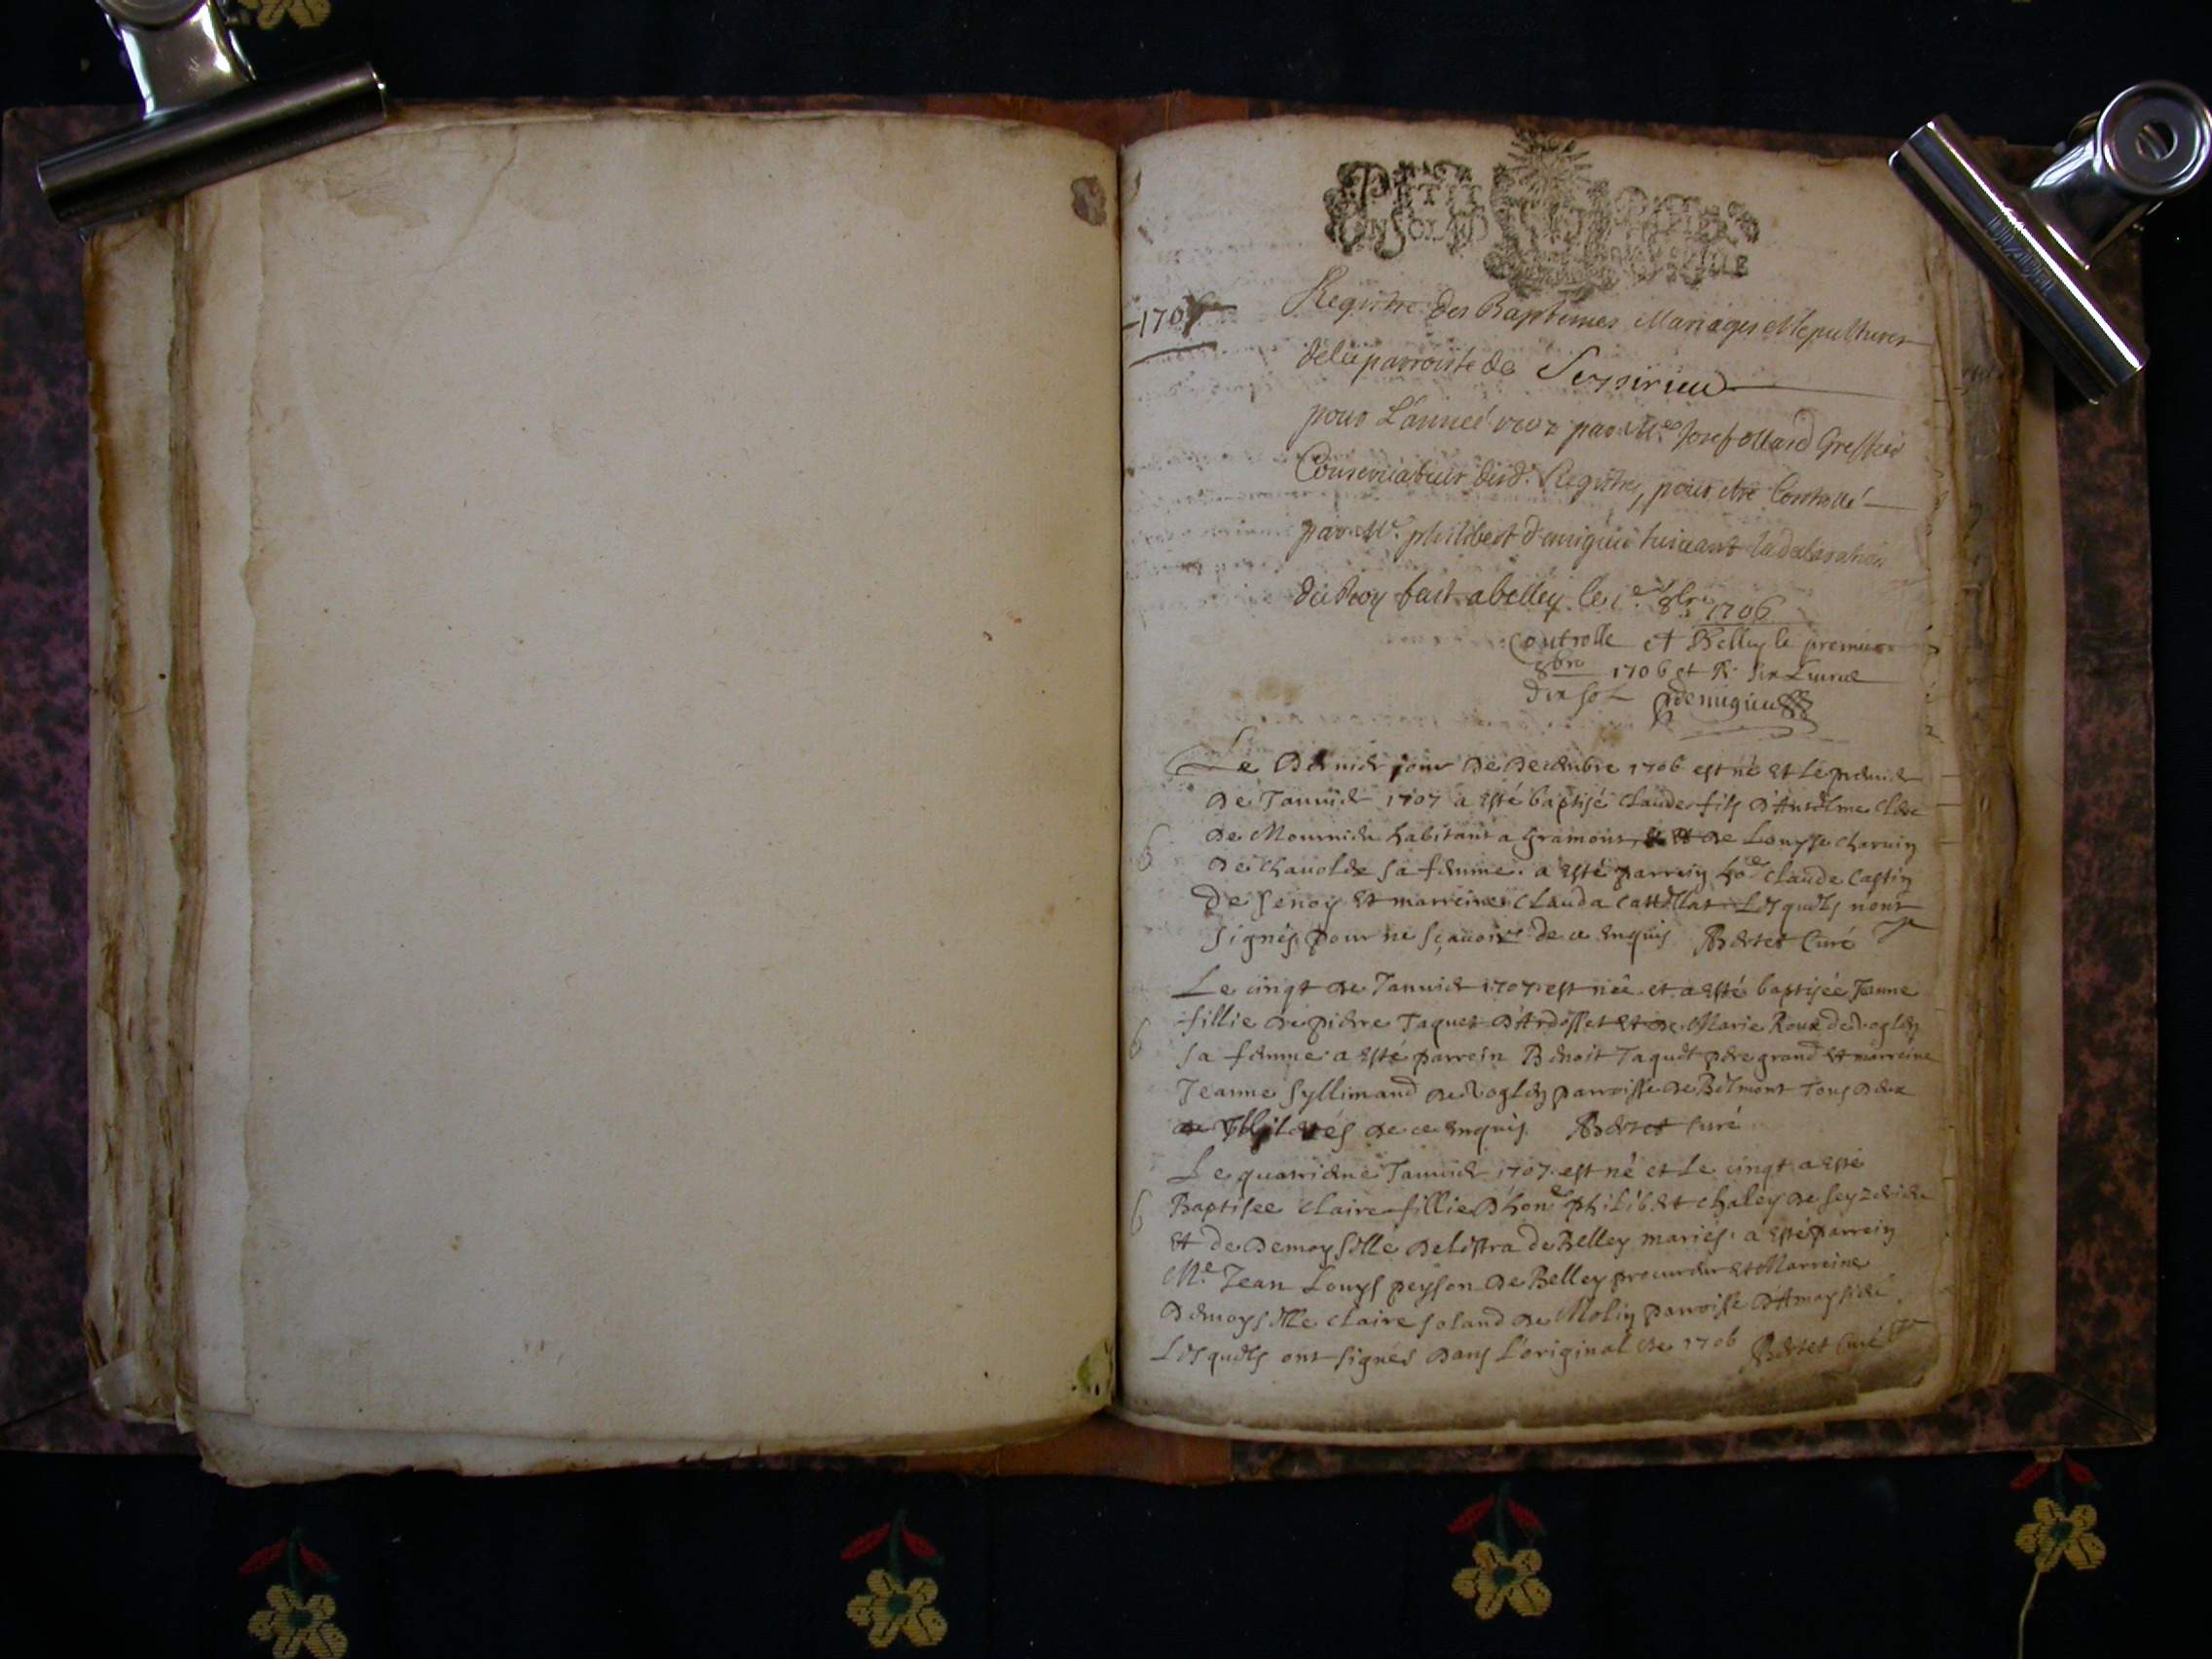 PETIT PAPIER
1707
Registre des Baptemes Mariages et sepultures
de la parroisse de Seyzirieu
pour L'année 1707 par Me Josef ollard Greffier
Conservateur desd. Registres, pour etre Controllé
par Me. philibert demigieu suivant la declaration
du Roy fait a belley le 1er 8bre 1706
Controlle A Belley le premier
8bre 1706 et R. six Livres
dix sol demigieu
Le dernier jour de decembre 1706 est né et le premier
de Januier 1707 a esté baptisé claude fils d'Anselme
de habitant a Gramont, et de Louyse charuin
de chauolee sa femme. a esté parrein ho.e claude Castin
de Senoy et marreine clauda Lesquels n'ont
signés pour ne sçauoir de ce enquis Bertet Curé
Le cinqt de Januier 1707 est née et a esté baptisée Jeanne
fillie de pierre Taquet d'Ardosset et de Marie Roux de vogley
sa femme a esté parrein Benoit Taquet pere grand et marreine
Jeanne Syllimand de vogley parroisse de Belmont Tous deux
de ce enquis. Bertet curé
Le quatrieme Januier 1707 est né et Le cinqt a esté
Baptisee claire fillie d'hon.e philibert chaley de Seyzerieu
et de demoyselle delistra de Belley mariés. a esté parrein
Me. Jean Louys peyson de Belley procureur et Marreine
demoyselle claire soland de Molin parroisse d'Amaysieu
Lesquels ont signés dans L'original de 1706 Bertet Curé